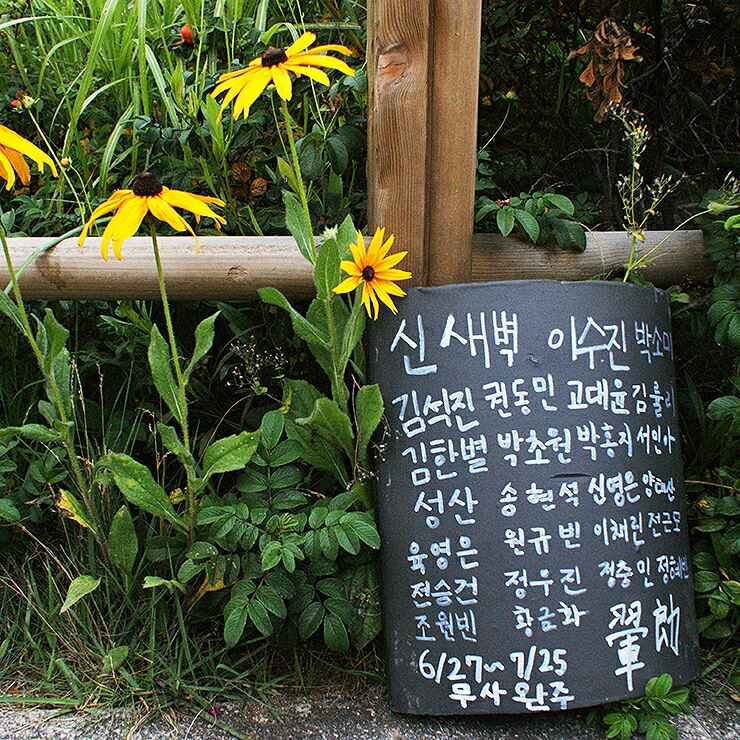 신새벽 이수진 박소미
김석진 권동민 고대윤 김룰리
김한별 박초원 박홍지 서인아
성산 송현석 신영은 양대산
육영은 원규빈 이채린 전근도
전승건 정우진 정충민 정혜빈
조원빈 황금화
6/27~7/25
무사완주